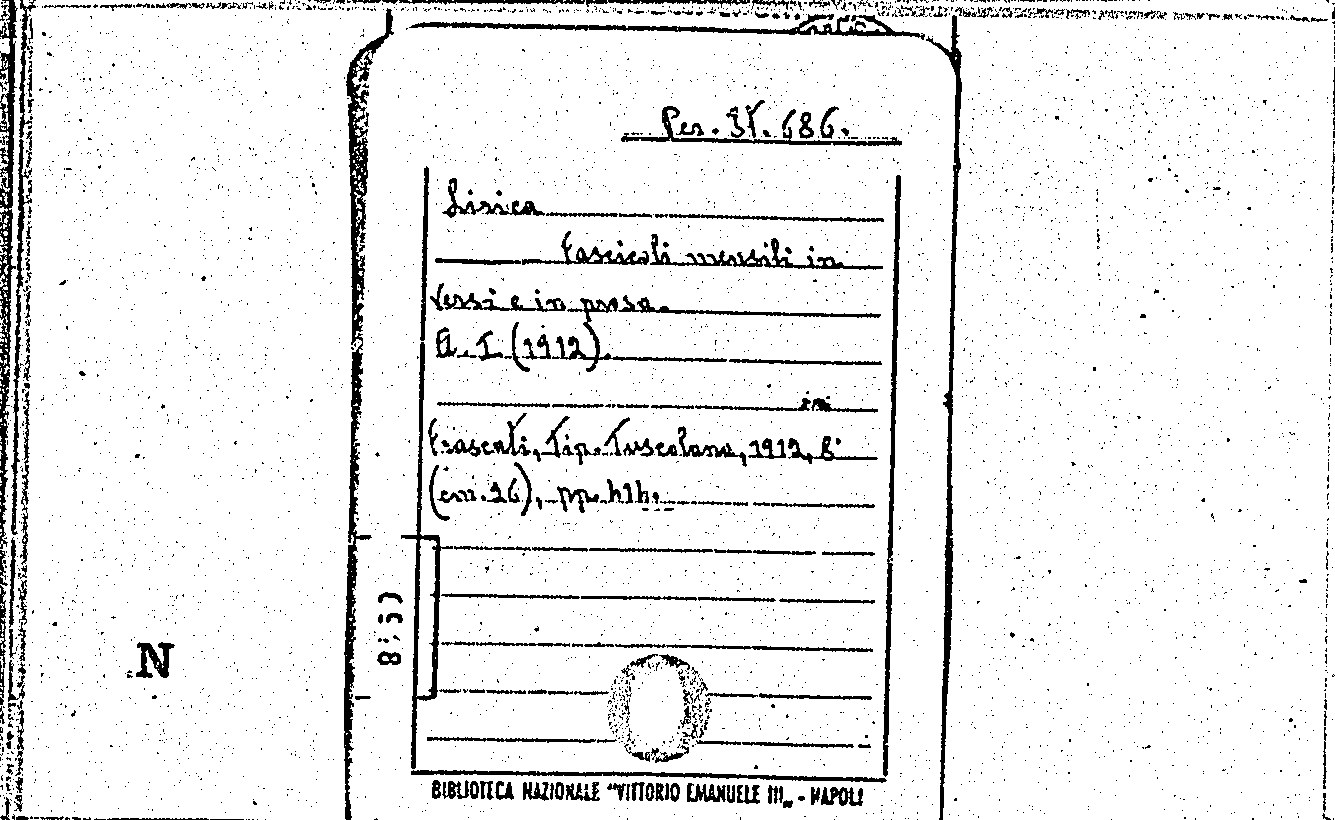 Per. 31. 686.
Lirica
Fascicoli mensili in
versi e in prosa.
A. I. (1912).
Frascati, Tip. Tuscolana, 1912, 8°
(cm. 26), pp.
N
BIBLIOTECA NAZIONALE "VITTORIO EMANUELE III„ - NAPOLI